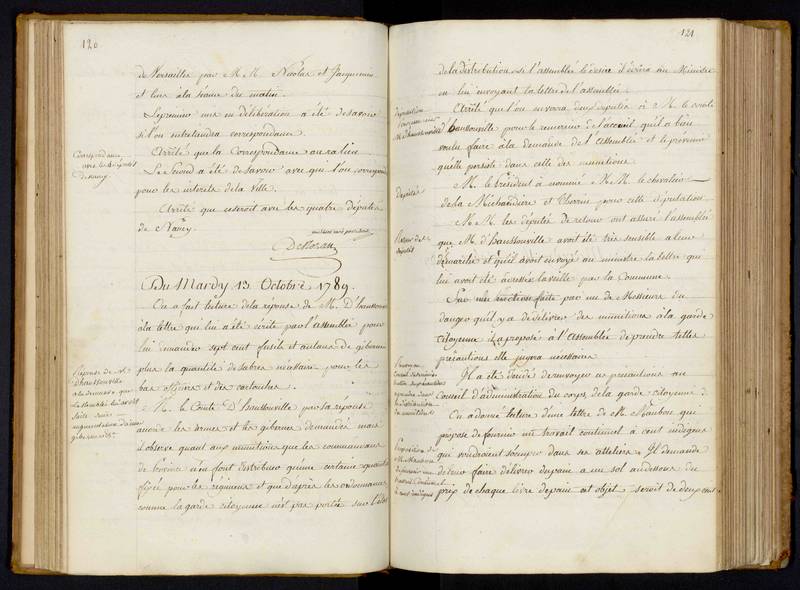 120
de Versailles par MM. Nicolas et Jacquemin
et lues à la séance du matin.
Le premier mis en délibération a été de savoir
si l'on entretiendra correspondance.
Arrêté que la Correspondance aura lieu
Le Second a été de savoir avec qui l'on correspond
pour les interets de la Ville.
Arrêté que ce seroit avec les quatre députés
de Nancy.
Correspondance
avec les députés
de Nancy.
Du Mardy 13 Octobre 1789.
On a fait lecture de la réponse de M. D'haussonville
à la lettre qui lui a été écrite par l'assemblée pour
lui demander sept cent fusils et autant de gibernes
plus la quantité de sabres nécessaire pour les
bas officiers et des cartouches.
Réponse de M.
D'haussonville
à la demande que
l'assemblée lui avoit
faite
augmentation d'armes
gibernes &c.
M. le Comte D'haussonville par sa réponse
accorde les armes et les gibernes demandées mais
il observe quant aux munitions que les commandans
de Province n'en font distribuer qu'une certaine quantité
fixée pour les régimens et que d'après les ordonnances
comme la garde citoyenne n'est pas portée sur l'état
121
de la distribution si l'assemblée le désire il écrira au Ministre
en lui envoyant la lettre de l'assemblée.
Arrêté que l'on enverra deux députés à M. le comte
d'haussonville pour le remercier de l'accueil qu'il a bien
voulu faire à la demande de l'assemblée et le prévenir
qu'elle persiste dans celle des munitions.
Députation
M. d'haussonville
M. le Président a nommé MM. le chevalier
de la Michaudiere et Therrin pour cette députation.
Députés
MM. les députés de retour ont assuré l'assemblée
que M. d'haussonville avoit été très sensible à leur
démarche et qu'il avoit envoyé au ministre la lettre qui
lui avoit été adressée la veille par la Commune.
Retour des
députés
Sur une motion faite par un de Messieurs du
danger qu'il y a de délivrer des munitions à la garde
citoyenne il a proposé à l'assemblée de prendre telles
précautions elle jugera nécessaires.
Il a été décidé de renvoyer ces précautions au
Conseil d'administration du corps de la garde citoyenne.
On a donné lecture d'une lettre de M. Mambois qui
propose de fournir un travail continuel à cent indigens
qui voudroient s'occuper dans ses atteliers. Il demande
de leur faire délivrer du pain a un sol audessous du
prix de chaque livre de pain cet objet seroit de deux cent
Proposition de